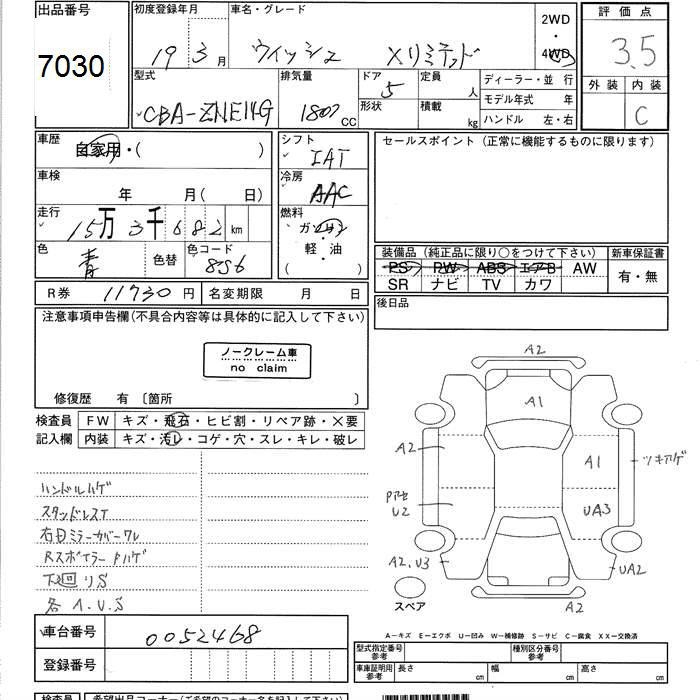 出品番号 初度登録年月 車名・グレード 2WD・4WD 評価点
7030 19 3月 ウィッシュ Xリミテッド 3.5
型式 排気量 ドア 定員 人 ディーラー・並行 外装 内装
CBA-ZNE14G 1800cc 5 形状 積載 kg モデル年式 年 C
ハンドル 左・右
車歴 自家用・( ) シフト IAT セールスポイント (正常に機能するものに限ります)
車検 年 月( 日) 冷房 AAC
走行 15万3千682km 燃料 ガソリン 軽・油 ( )
色 青 色替 色コード 8S6
装備品 (純正品に限り○をつけて下さい) 新車保証書
PS PW ABS エアB AW 有・無
SR ナビ TV カワ
R券 11730円 名変期限 月 日 後日品
注意事項申告欄(不具合内容等は具体的に記入して下さい)
ノークレーム車
no claim
修復歴 有 〔箇所 〕
検査員 FW キズ・飛石・ヒビ割・リペア跡・X要
記入欄 内装 キズ・汚レ・コゲ・穴・スレ・キレ・破レ
ハンドルハゲ
スタッドレスT
右Dミラーカバーワレ
Rスポイラー ハゲ
下廻リS
各A.U.S
A2
A1
A2 A1 ツキアゲ
U2 UA3
A2.U3 UA2
スペア A2
A―キズ E―エクボ U―凹み W―補修跡 S―サビ C―腐食 XX―交換済
車台番号 0052468
登録番号
型式指定番号 参考 種別区分番号 参考
車庫証明用 参考 長さ cm 幅 cm 高さ cm
検査員 希望出品コーナー(ご希望のコーナー名をご記入下さい)